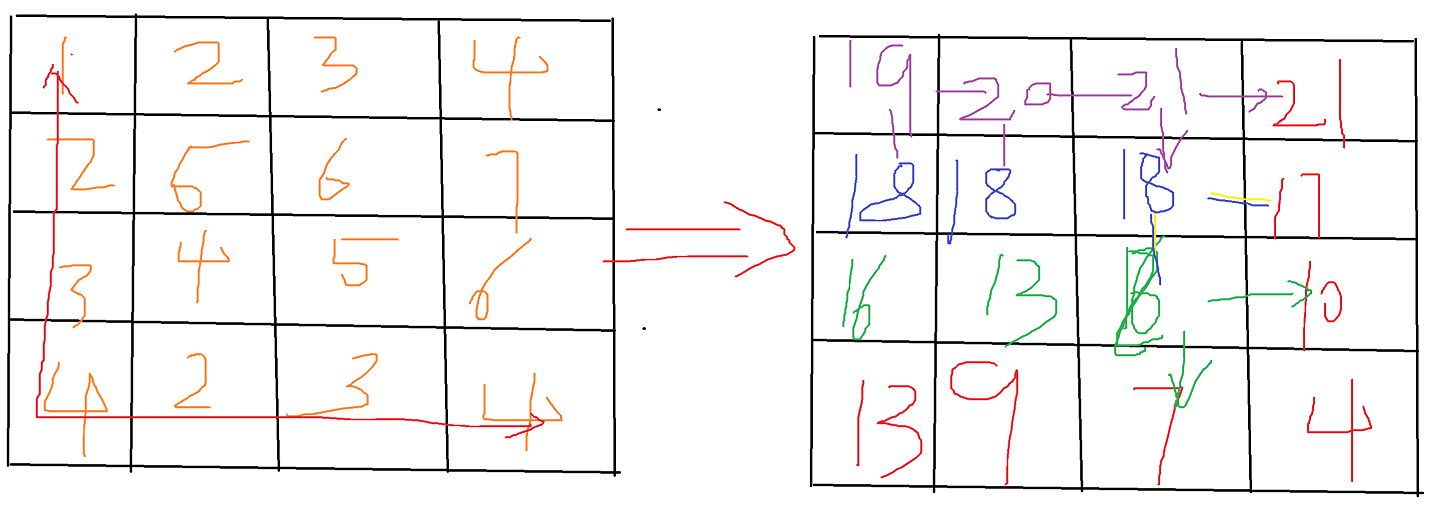 1 2 3 4
2 5 6 7
3 4 5 6
4 2 3 4
19 20 21 21
18 18 18 17
16 13 10
13 9 7 4